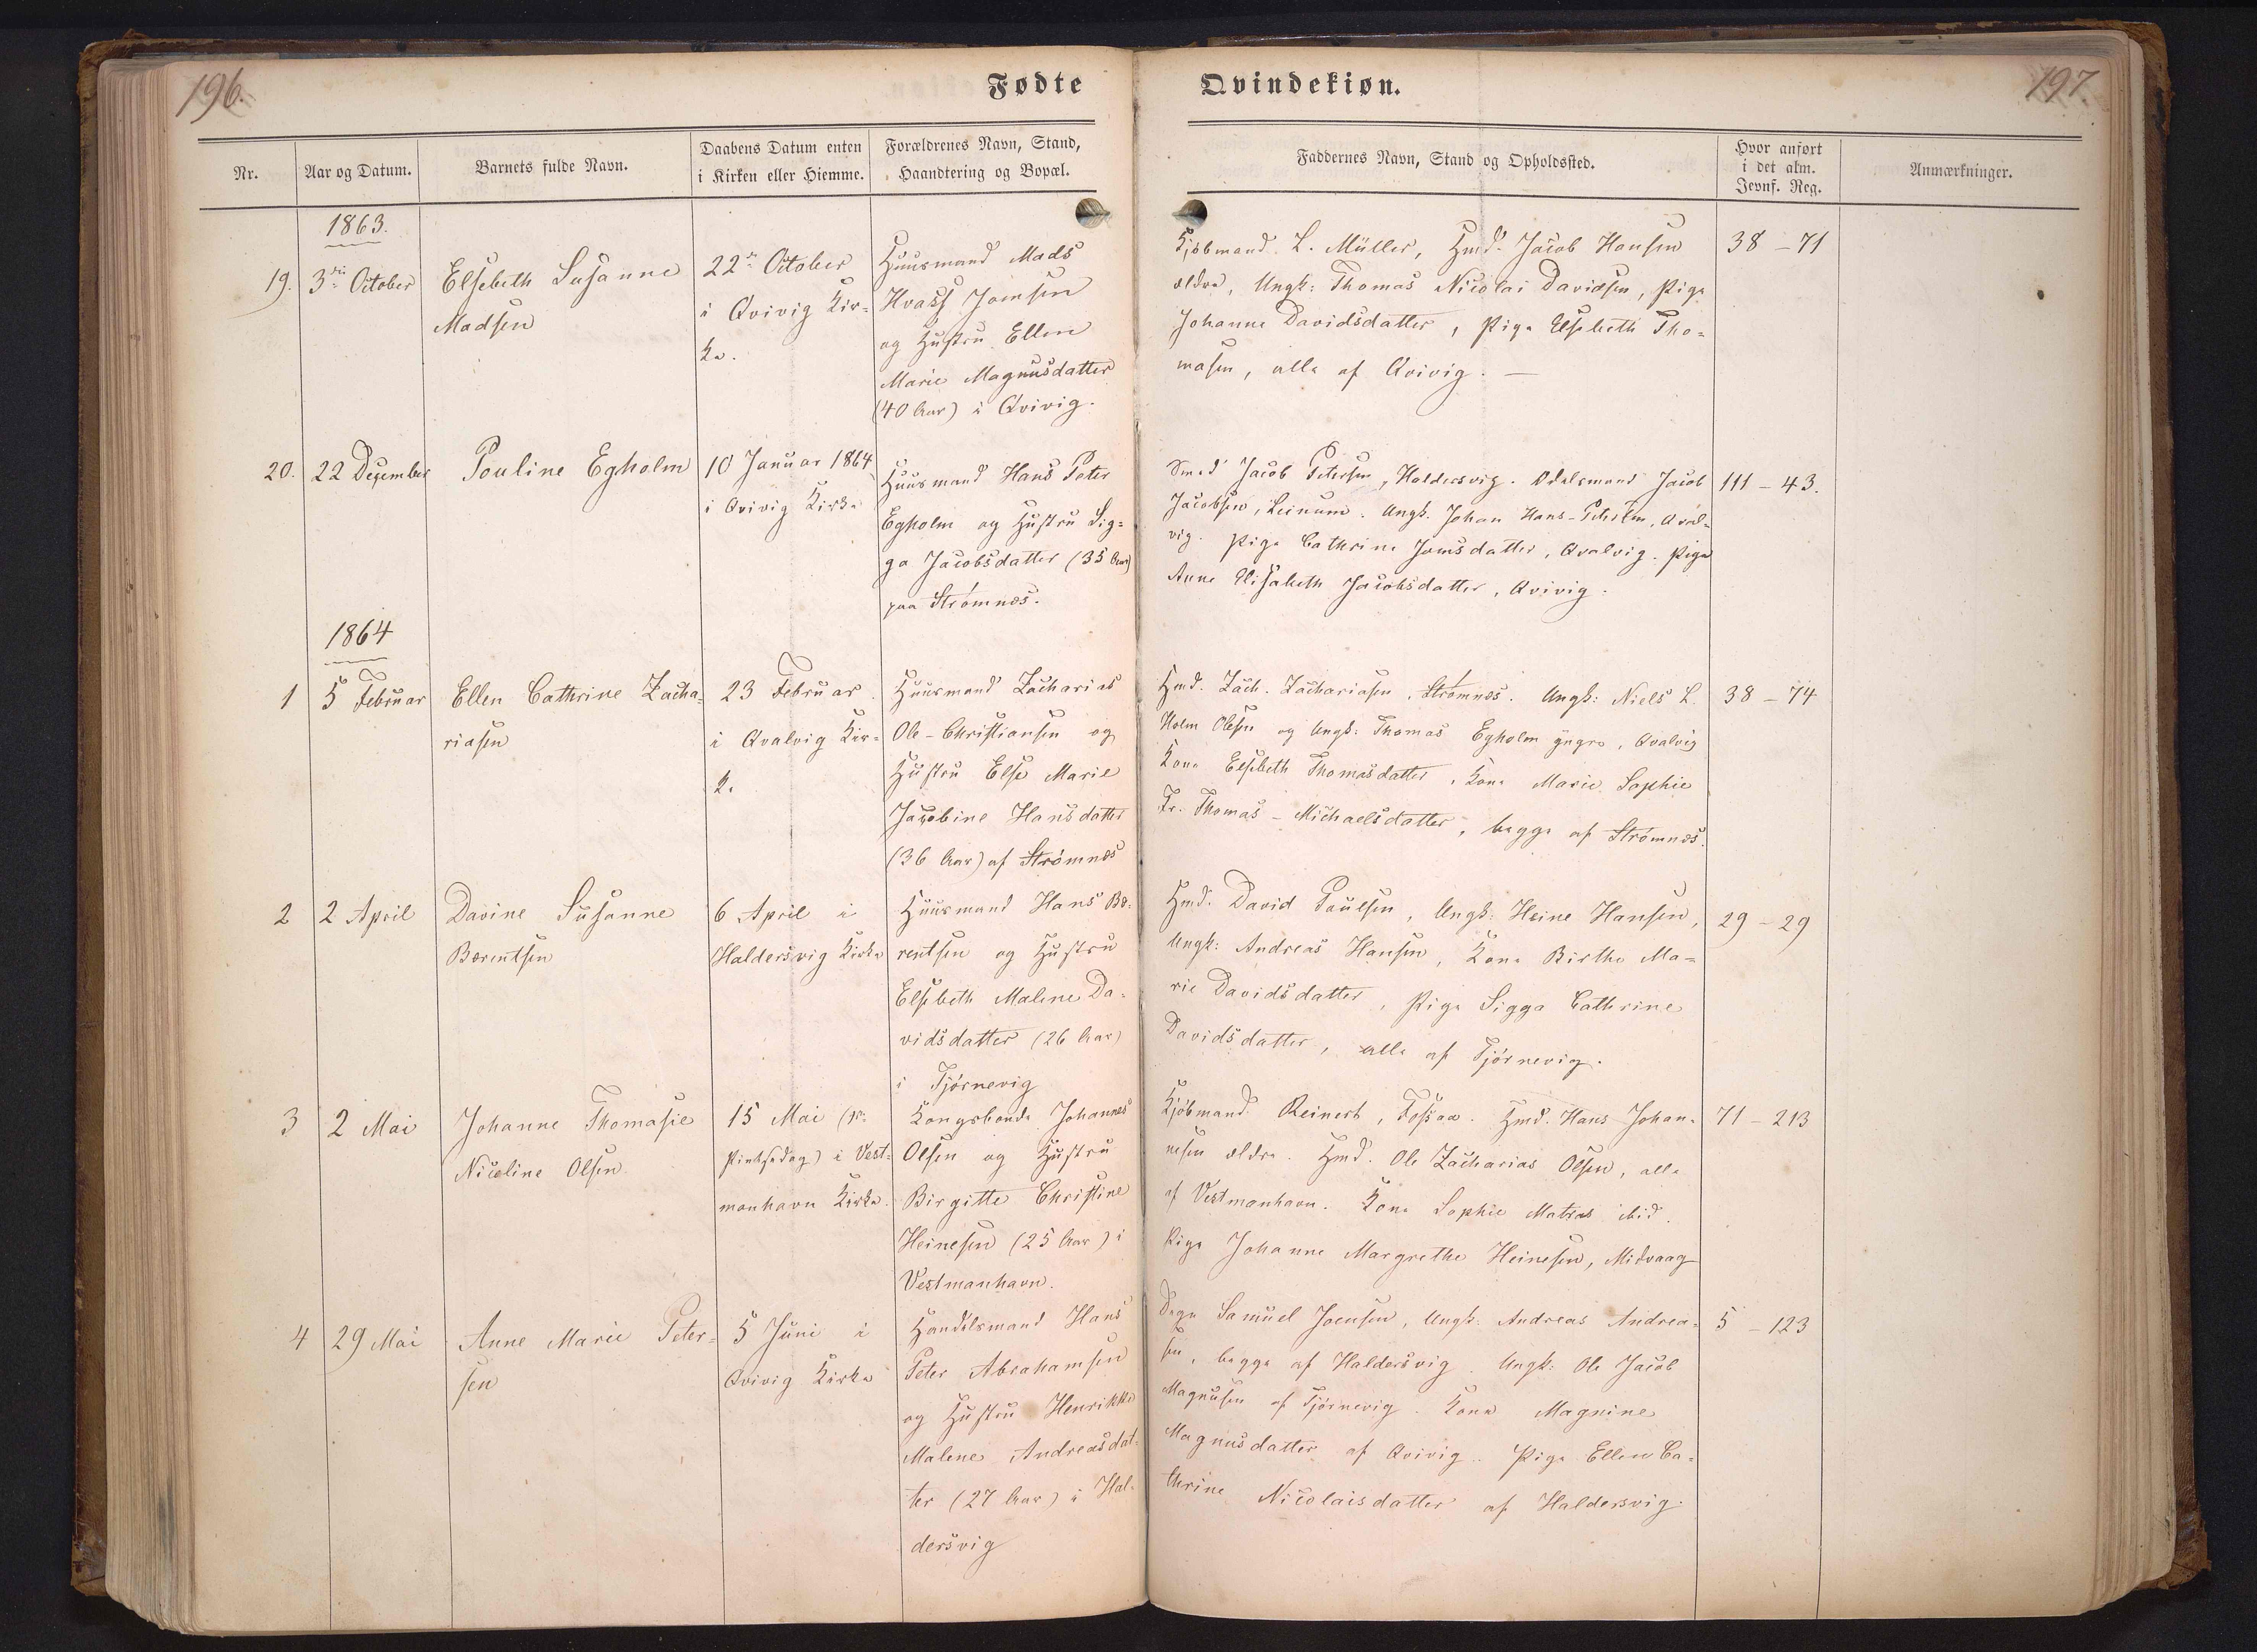 196.
Fødte
Qvindekiøn.
197.
Nr.
Aar og Datum.
Barnets fulde Navn.
Daabens Datum enten
i Kirken eller Hiemme.
Forældrenes Navn, Stand,
Haandtering og Bopæl.
Faddernes Navn, Stand og Opholdssted.
Hvor anført
i det alm.
Jevnf. Reg.
Anmærkninger.
1863.
19.
3die October
Elsebeth Susanne
Madsen
22de October
i Qvivig Kir=
ke.
Huusmand Mads
Hvass Joensen
og Hustru Ellen
Marie Magnusdatter
(40 Aar) i Qvivig.
Kjøbmand L. Müller, Hmd. Jacob Hansen
ældre, Ungk: Thomas Nicolai Davidsen, Pige
Johanne Davidsdatter, Pige Elsebeth Tho=
masen, alle af Qvivig. —
38 - 71
20.
22 December
Pouline Egholm
10 Januar 1864
i Qvivig Kirke
Huusmand Hans Peter
Egholm og Hustru Sig=
ga Jacobsdatter (35 Aar)
paa Strømnæs.
Smed Jacob Petersen, Haldersvig. Odelsmand Jacob
Jacobsen, Leinum. Ungk. Johan Hans-Petersen, Qval=
vig. Pige Cathrine Joensdatter, Qvalvig. Pige
Anne Elisabeth Jacobsdatter, Qvivig.
111 - 43.
1864
1
5 Februar
Ellen Cathrine Zacha=
riasen
23 Februar
i Qvalvig Kir=
ke
Huusmand Zacharias
Ole-Christiansen og
Hustru Else Marie
Jacobine Hansdatter
(36 Aar) af Strømnæs
Hmd. Zach. Zachariasen, Strømnæs. Ungk: Niels L.
Holm Olesen og Ungk: Thomas Egholm yngre, Qvalvig
Kone Elsebeth Thomasdatter, Kone Marie Sophie
Fr. Thomas-Michaelsdatter, begge af Strømnæs.
38 - 74
2
2 April
Davine Susanne
Bærentsen
6 April i
Haldersvig Kirke
Huusmand Hans Bæ=
rentsen og Hustru
Elsebeth Malene Da=
vidsdatter (26 Aar)
i Tjørnevig
Hmd. David Poulsen, Ungk: Heine Hansen,
Ungk: Andreas Hansen, Kone Birthe Ma=
rie Davidsdatter, Pige Sigga Cathrine
Davidsdatter, alle af Tjørnevig.
29 - 29
3
2 Mai
Johanne Thomasie
Nicoline Olsen.
15 Mai (1ste
Pintsedag) i Vest=
manhavn Kirke.
Kongsbonde Johannes
Olsen og Hustru
Birgitte Christine
Heinesen (25 Aar) i
Vestmanhavn.
Kjøbmand Reinert, Fossaa. Hmd. Hans Johan=
nesen ældre. Hmd. Ole Zacharias Olsen, alle
af Vestmanhavn. Kone Sophie Matras ibid.
Pige Johanne Margrethe Heinesen, Midvaag
71 - 213
4
29 Mai
Anne Marie Peter=
sen
5 Juni i
Qvivig Kirke
Handelsmand Hans
Peter Abrahamsen
og Hustru Henrikke
Malene Andreasdat=
ter (27 Aar) i Hal=
dersvig
Degn Samuel Joensen, Ungk: Andreas Andrea=
sen, begge af Haldersvig. Ungk: Ole Jacob
Magnusen af Tjørnevig. Kone Magnine
Magnusdatter af Qvivig. Pige Ellen Ca=
thrine Nicolaisdatter af Haldersvig.
5 - 123